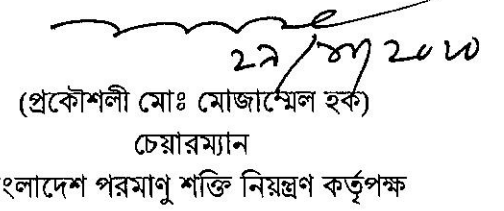 (প্রকৌশলী মোঃ মোজাম্মেল হক)
চেয়ারম্যান
ংলাদেশ পরমাণু শক্তি নিয়ন্ত্রণ কর্তৃপক্ষ